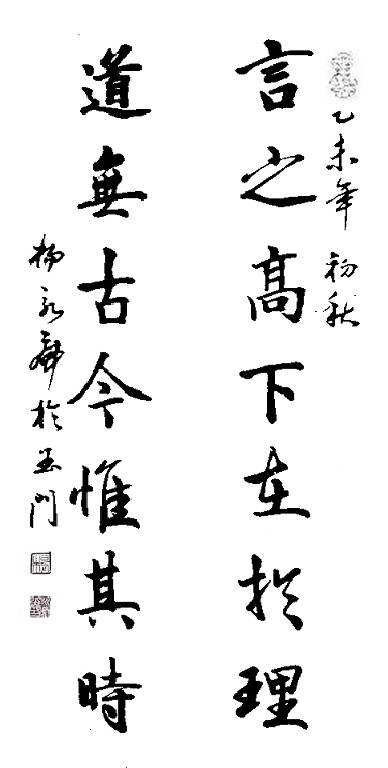 乙未年 初秋
言之高下在於理
道無古今惟其時
於玉門